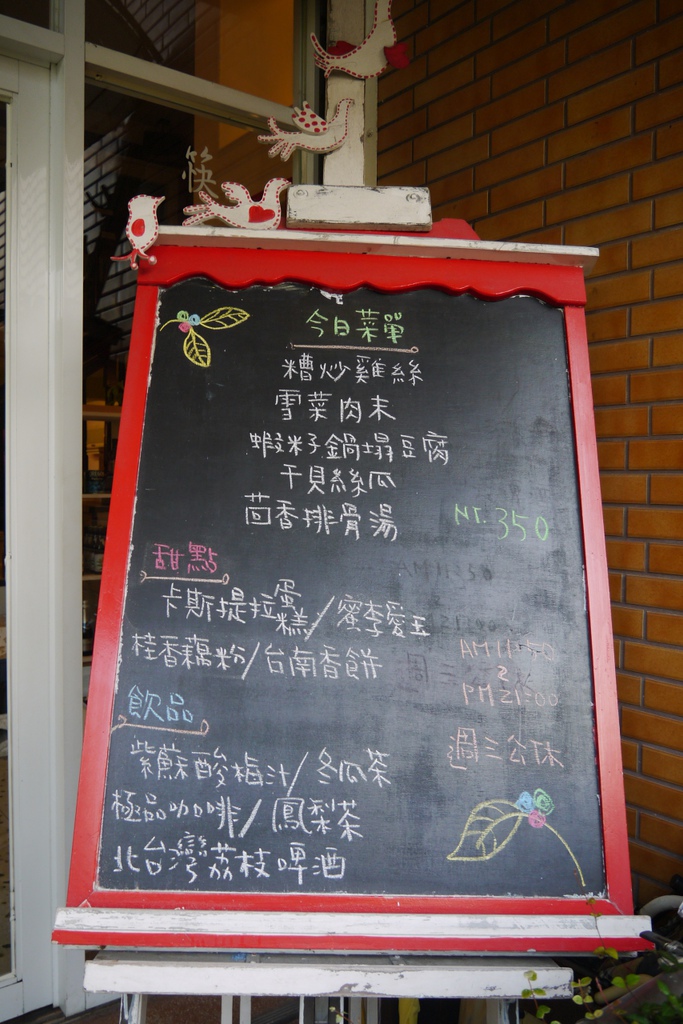 筷
今日菜單
糟炒雞絲
雪菜肉末
蝦籽子鍋塌豆腐
干貝絲瓜
茴香排骨湯
NT.350
甜點
卡斯提拉蛋糕/蜜李愛玉
桂香藕粉/台南香餅
AM11:30
PM21:00
飲品
週三公休
紫蘇酸梅汁/冬瓜茶
極品咖啡/鳳梨茶
北台灣荔枝啤酒